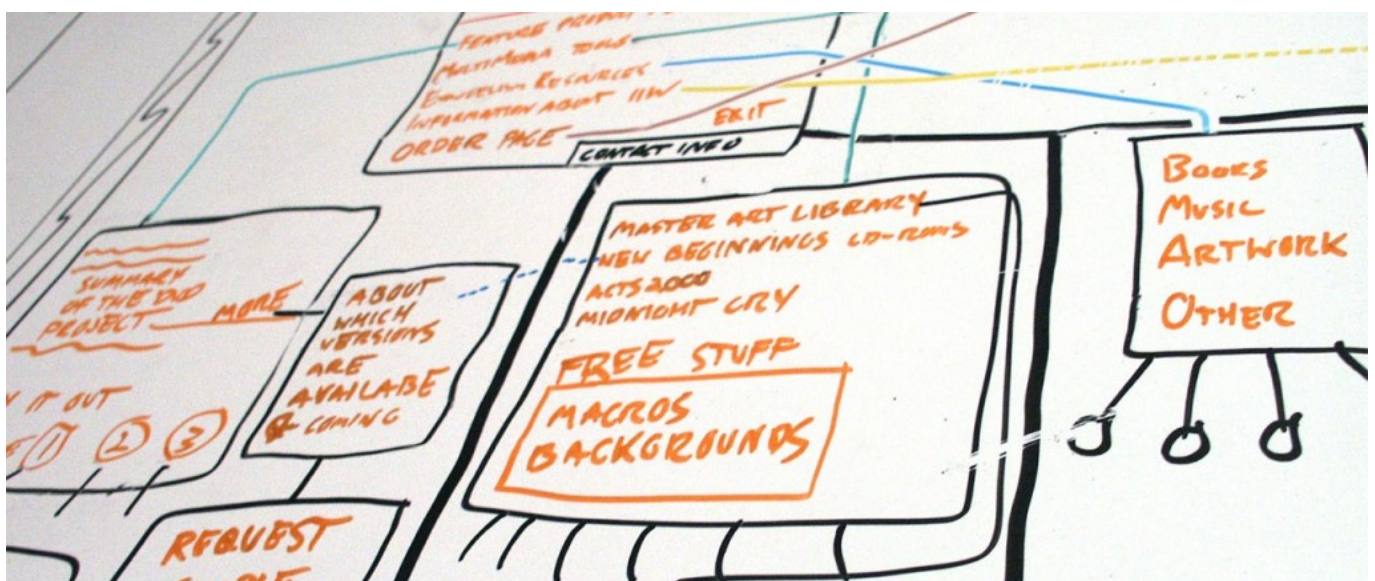 FEATURE
MULTIMEDIA TOOLS
EVANGELISM RESOURCES
INFORMATION ABOUT IIW
ORDER PAGE
EXIT
CONTACT INFO
SUMMARY
OF THE DVD
PROJECT
MORE
IT OUT
1 2 3
ABOUT
WHICH
VERSIONS
ARE
AVAILABE
& COMING
REQUEST
MASTER ART LIBRARY
NEW BEGINNINGS CD-ROMS
ACTS 2000
MIDNIGHT CRY
FREE STUFF
MACROS
BACKGROUNDS
BOOKS
MUSIC
ARTWORK
OTHER